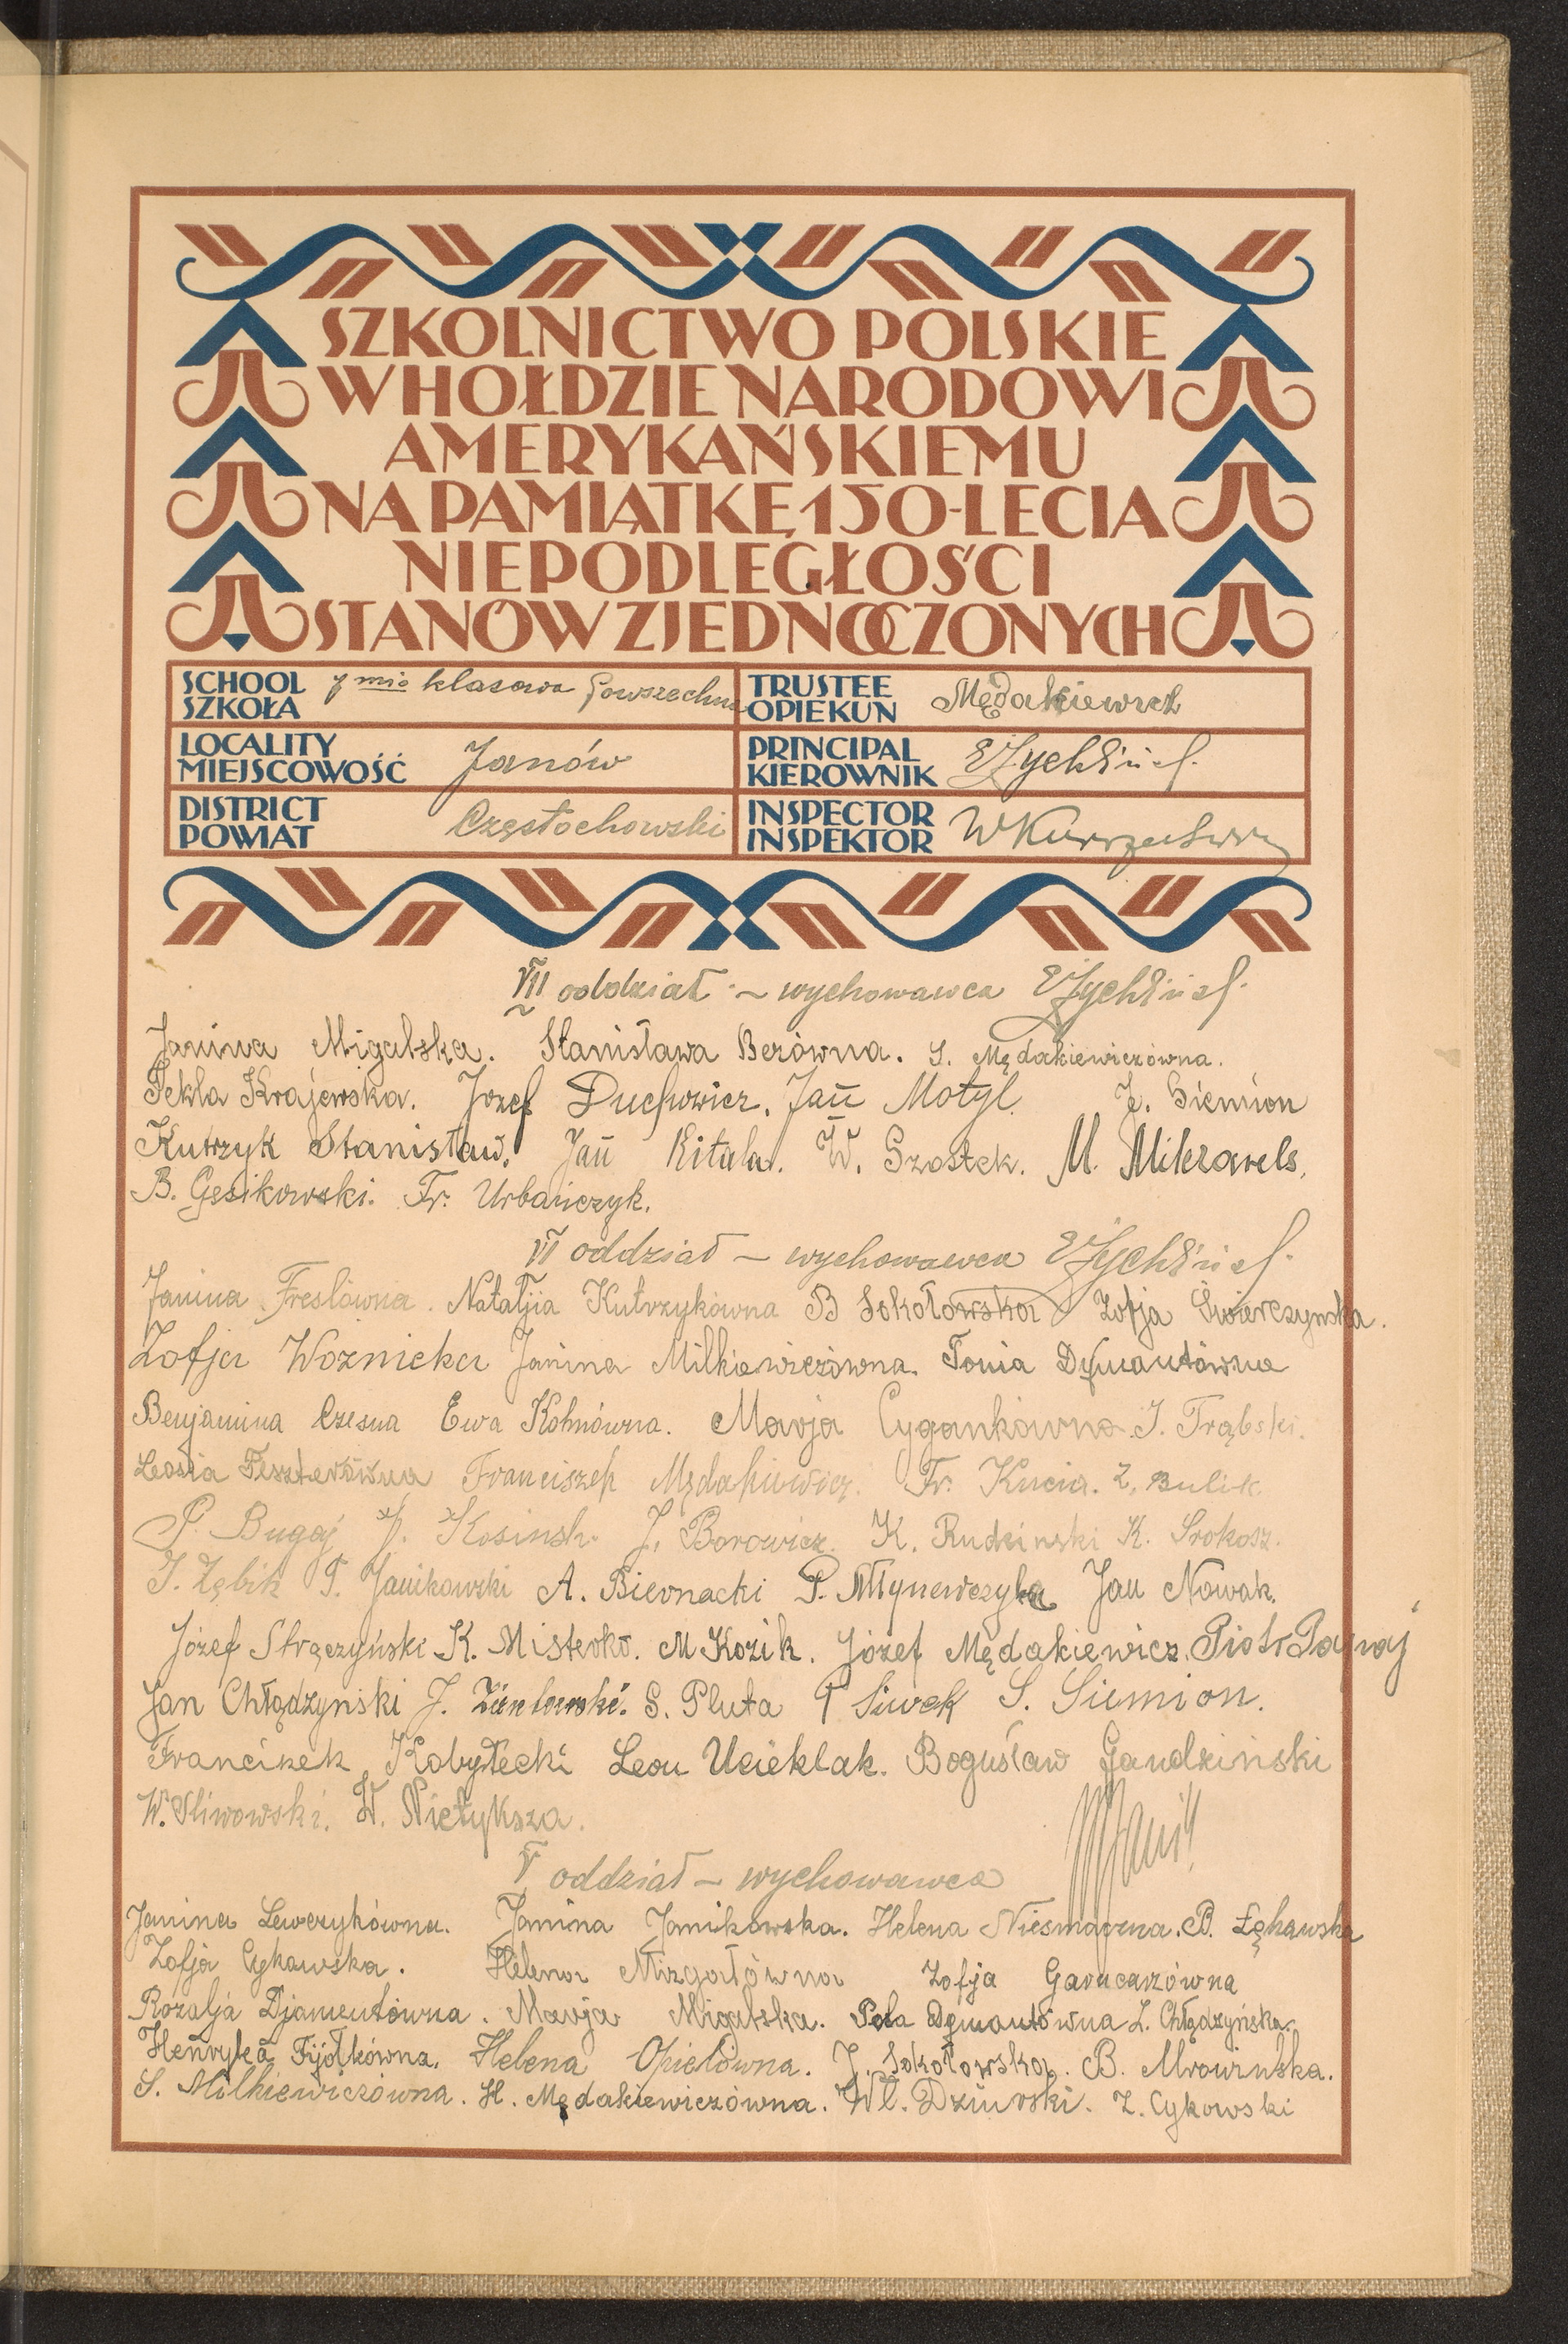 SZKOLNICTWO POLSKIE
W HOŁDZIE NARODOWI
AMERYKAŃSKIEMU
NA PAMIĄTKĘ 150-LECIA
NIEPODLEGŁOŚCI
STANÓW ZJEDNOCZONYCH
SCHOOL SZKOŁA 7 mio klasowa Powszechna
TRUSTEE OPIEKUN Mędakiewicz
LOCALITY MIEJSCOWOŚĆ Janów
PRINCIPAL KIEROWNIK
DISTRICT POWIAT Częstochowski
INSPECTOR INSPEKTOR
VII oddział - wychowawca
Janina Migalska. Stanisława Berówna. S. Mędakiewiczówna.
Tekla Krajewska. Józef Duchowicz. Jan Motyl. J. Siemion
Kutrzyk Stanisław. Jan Kitala. W. Szostek. M.
B. Gęsikowski. Fr. Urbańczyk.
VI oddział - wychowawca
Janina Freslówna. Nataljia Kutrzykówna B Sokołowska Zofja Świerczynska.
Zofja Woźnicka Janina Milkiewiczówna. Tonia Dymantówna
Benjamina Czesna Ewa Kohnówna. Marja Cygankówna J. Trąbski.
Franciszek Mędakiewicz. Fr. Kucia. Z. Bulik
P. Bugaj J. Kosinsk. J. Borowicz. K. Rudzinski K. Srokosz.
J. Ząbik T. Janikowski A. Biernacki P. Młynarczyk Jan Nowak.
Józef Strączyński K. M Kozik. Józef Mędakiewicz. Piotr
Jan Chłądzyński J. S. Pluta Siwek S. Siemion.
Francizek Kobyłecki Leon Ucieklak. Bogusław Gaudziński
W. Sliwowski. W. Nietyksza.
V oddział - wychowawca
Janina Lewczykówna. Janina Janikowska. Helena Niesmaczna. B. Łękawska
Zofja Cykawska. Helena Mizgałówna Zofja Garncarzówna
Rozalja Djamentówna. Marja Migalska. Pola Dymantówna Z. Chłądzyńska.
Henryka Fijołkówna. Helena Opielówna. J. Sokołowska. B. Mrowińska.
S. Milkiewiczówna. H. Mędakiewiczówna. Wł. Dziurski. Z. Cykowski